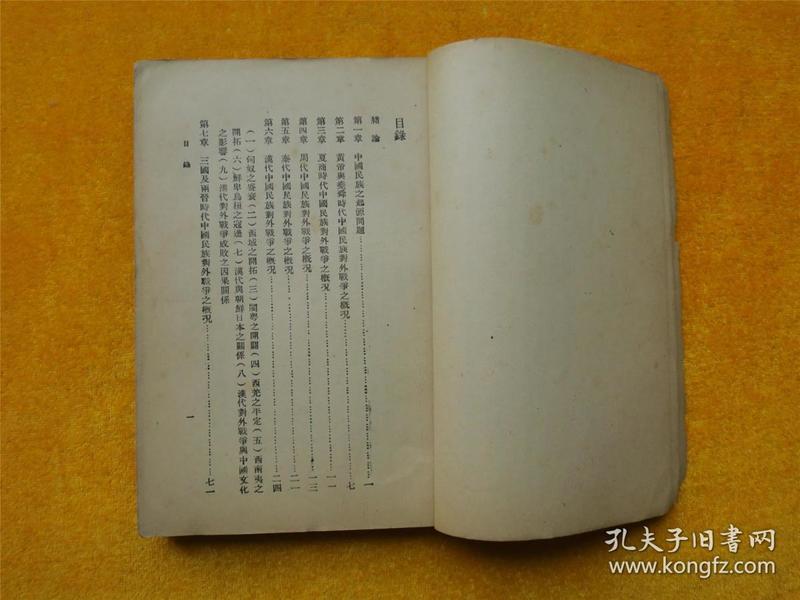 目錄
緖論……一
第一章 中國民族之起源問題……七
第二章 黃帝與堯舜時代中國民族對外戰爭之槪況……一一
第三章 夏商時代中國民族對外戰爭之槪況……一三
第四章 周代中國民族對外戰爭之槪況……
第五章 秦代中國民族對外戰爭之槪況……二一
第六章 漢代中國民族對外戰爭之槪況……二四
(一)匈奴之賓衰(二)西域之開拓(三)閩粵之開闢(四)西羌之平定(五)西南夷之
開拓(六)鮮卑烏桓之寇邊(七)漢代與朝鮮日本之關係(八)漢代對外戰爭與中國文化
之影響(九)漢代對外戰爭成敗之因果關係
第七章 三國及兩晉時代中國民族對外戰爭之槪況……七一
目錄
一
孔夫子旧书网
www.kongfz.com